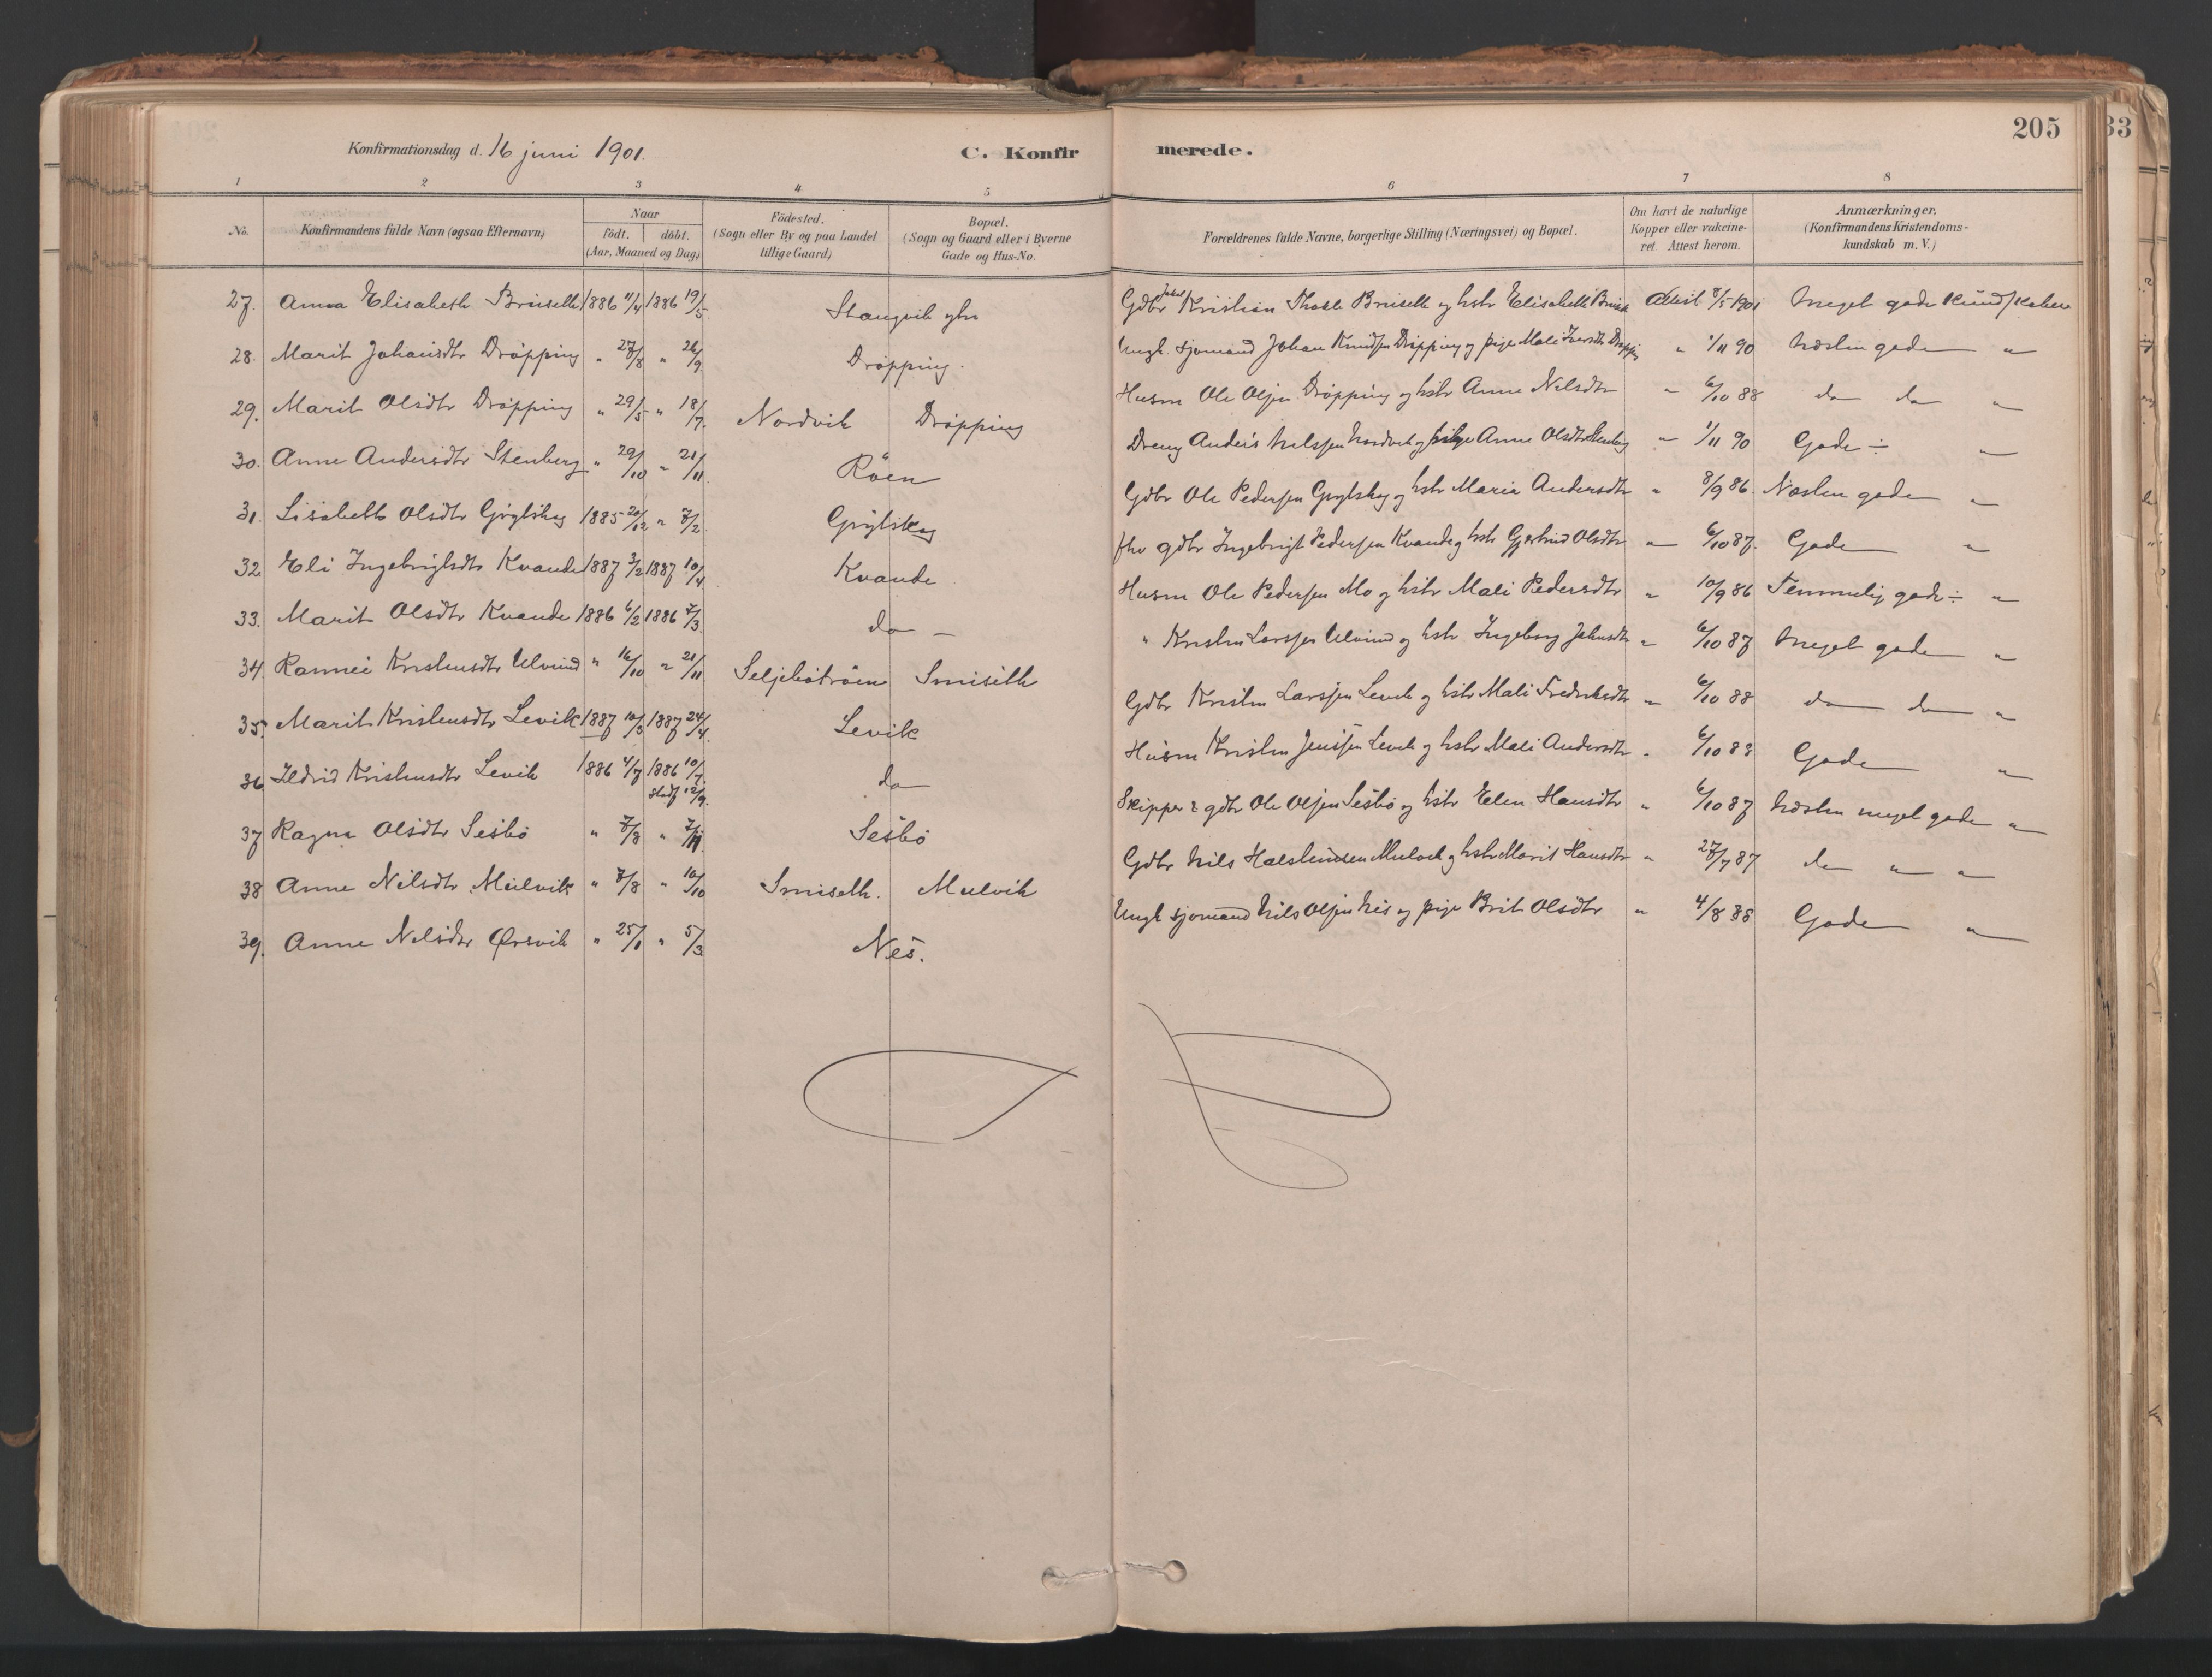 205
33
Konfirmationsdag d. 16 juni 1901.
C. Konfirmerede.
1 2 3 4 5 6 7 8
No.
Konfirmandens fulde Navn (ogsaa Efternavn)
Naar
födt. döbt.
(Aar, Maaned og Dag)
Födested.
(Sogn eller By og paa Landet
tillige Gaard)
Bopæl.
(Sogn og Gaard eller i Byerne
Gade og Hus-No.
Forældrenes fulde Navne, borgerlige Stilling (Næringsvei) og Bopæl.
Om havt de naturlige
Kopper eller vakcine-
ret Attest herom.
Anmærkninger,
(Konfirmandens Kristendoms-
kundskab m. V.)
27. Anna Elisabeth Bruseth 1886 11/4 1886 19/5. Stangvik Gdbr Kristian Bruseth og hstr Elisabeth Attest 8/5 1901 Meget gode
28. Marit Johansdtr Dröpping " 27/8 " 26/9 Dröpping. Ungk. sjömand Johan Knudsen Dröpping og pige Mali " 1/11 90 Næsten gode "
29. Marit Olsdtr Dröpping " 29/5 " 18/7. Nordvik Dröpping Husm Ole Olsen Dröpping og hstr Anne Nilsdtr " 6/10 88 do do "
30. Anne Andersdtr Stenberg " 29/10 " 21/11 Röen Dreng Anders Nilssen Nordvik og pige Anne Olsdtr Stenberg " 1/11 90 Gode ÷ "
31. Lisabeth Olsdtr Grytskog 1885 20/12 " 7/2. Grytskog Gdbr Ole Pedersen Grytskog og hstr Maria Andersdtr " 8/9 86. Næsten gode "
32. Eli Ingebrigtsdtr Kvande 1887 3/2 1887 10/4 Kvande fhv gdbr Ingebrigt Pedersen Kvande og hstr Gjertrud Olsdtr " 6/10 87. Gode "
33. Marit Olsdtr Kvande 1886 6/2 1886 7/3. do — Husm Ole Pedersen Mo og hstr Mali Pedersdtr " 10/9 86 Temmelig gode ÷ "
34. Rannei Kristensdtr Ulvund " 16/10 " 21/11. Seljebötröen Smiseth " Kristen Larssen Ulvund og hstr Ingeborg Johnsdtr " 6/10 87 Meget gode "
35. Marit Kristensdtr Levik 1887 10/3 1887 24/4. Levik Gdbr Kristen Larssen Levik og hstr Mali Fredriksdtr " 6/10 88 do do "
36. Ildrid Kristensdtr Levik 1886 4/7 1886 10/7. do Husm Kristen Jenssen Levik og hstr Mali Andersdtr " 6/10 88 Gode "
Stadf 12/9.
37 Ragna Olsdtr Sesbö " 7/8 " 7/11. Sesbö Skipper & gdbr Ole Olsen Sesbö og hstr Elen Hansdtr " 6/10 87 Næsten meget gode "
38 Anne Nilsdtr Mulvik " 7/8 " 10/10 Smiseth. Mulvik Gdbr Nils Halstensen Mulvik og hstr Marit Hansdtr " 27/7 87 do " "
39. Anne Nilsdtr Ørsvik " 25/1 " 5/3 Nes. Ungk sjömand Nils Olsen Nes og pige Brit Olsdtr " 4/8 88 Gode "